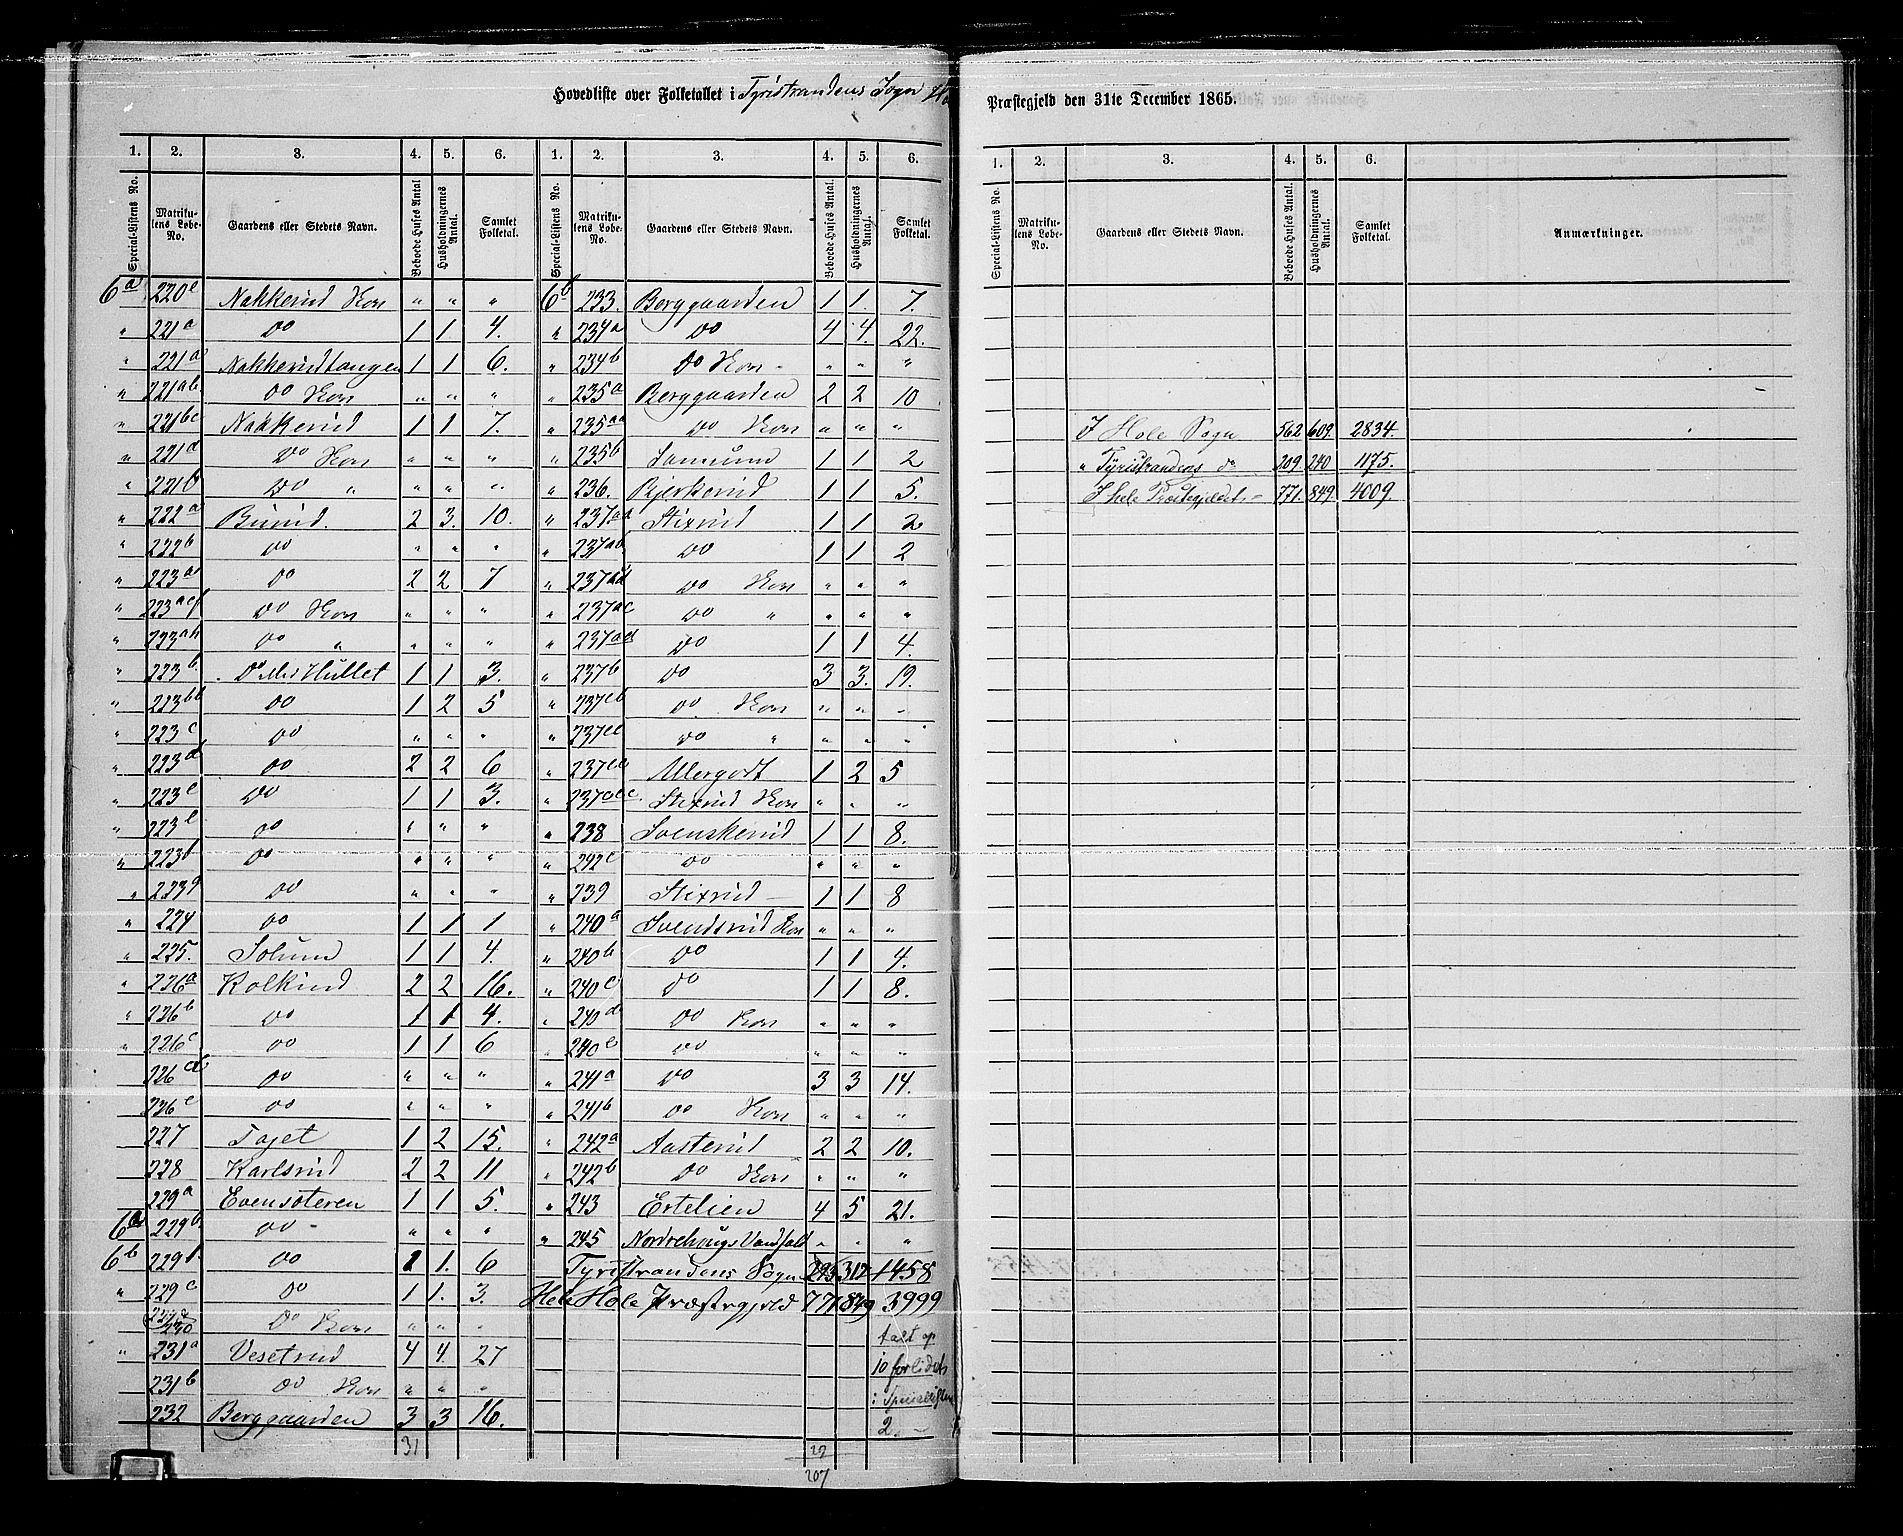 Hovedliste over Folketallet i Tyristrandens Sogn
Præstegjeld den 31te December 1865.
1. 2. 3. 4. 5. 6. 1. 2. 3. 4. 5. 6.
Special-Listens No. Matrikulens Løbe-No. Gaardens eller Stedets Navn. Beboede Huses Antal Husholdningernes Antal. Samlet Folketal. Special-Listens No. Matrikulens Løbe-No. Gaardens eller Stedets Navn. Beboede Huses Antal. Husholdningernes Antal. Samlet Folketal.
6a 220e Nakkerud " " " 6b 233. Berggaarden 1 1. 7.
" 221a Do 1 1. 4. " 234a Do 4 4. 22.
" 221a Nakkerudtangen 1 1 6. " 234b Do " " "
" 221ab Do " " " " 235a Berggaarden 2 2 10
" 221bc Nakkerud 1 1 7. " 235aa Do " " "
" 221d Do " " " " 235b 1 1 2
" 221b Do " " " " " 236. Bjerkerud 1 1 5.
" 222a Burud. 2 3. 10. " 237aa Stixrud 1 1 2
" 222b Do " " " " 237ab Do 1 1 2
" 223a Do 2 2 7 " 237ad Do " " "
" 223aef Do " " " " 237ac Do " " " "
" 223ah Do " " " " " 237ad Do 1 1 4.
" 223b. Do Hullet 1 1 3. " 237b Do 3 3. 19.
" 223bb Do 1 2 5 " 237cb Do " " "
" 223c Do " " " " 237cc Do " " " "
" 223d Do 2 2 6 " 237 Allergodt 1 2 5
" 223e Do 1 1 3. " 237 Stixrud " " "
" 223e Do " " " " 238 Svenskerud 1 1 8.
" 223b Do " " " " 242c Do " " "
" 223g Do " " " " 239 Stixrud 1 1 8
" 224 Do 1 1 1 " 240a Svendsrud " " "
" 225. Solum 1 1 4. " 240b Do 1 1 4.
" 226a Kolkind 2 2 16. " 240c Do 1 1 8.
" 226b Do 1 1 4. " 240d Do " " "
" 226c Do 1 1 6 240e Do " " "
226cd Do " " " " 241a Do 3 3 14.
226e Do " " " " 241b Do " " "
227 Tajet 1 2 15. " 242a Aasterud 2 2 10.
228 Karlsrud 2 2 11 " 242b Do " " "
229a Evensæteren 1 1 5. " 243 Ertelien 4 5 21.
6a 229b Do " " " " 245 Nordrehaugs Vandfald " " "
6b 229b Do 1 1. 6 Tyristrandens Sogn 293 312 1458
" 229c Do 1 1. 3. Hele Hole Præstegjeld 771 849 3999
229d 230 Do " " talt op
" 231a Vesetrud 4 4. 27 10 forlidet
231b Do " " " i Speciallisten
232 Berggaarden 3 3 16. 2.
31
207
1. 2. 3. 4. 5. 6.
Special-Listens No. Matrikulens Løbe-No. Gaardens eller Stedets Navn. Beboede Huses Antal. Husholdningernes Antal. Samlet Folketal. Anmærkninger.
I Hole Sogn 562 609. 2834.
" Tyristrandens do 209. 240 1175.
I hele Præstegjeldet 771. 849. 4009.